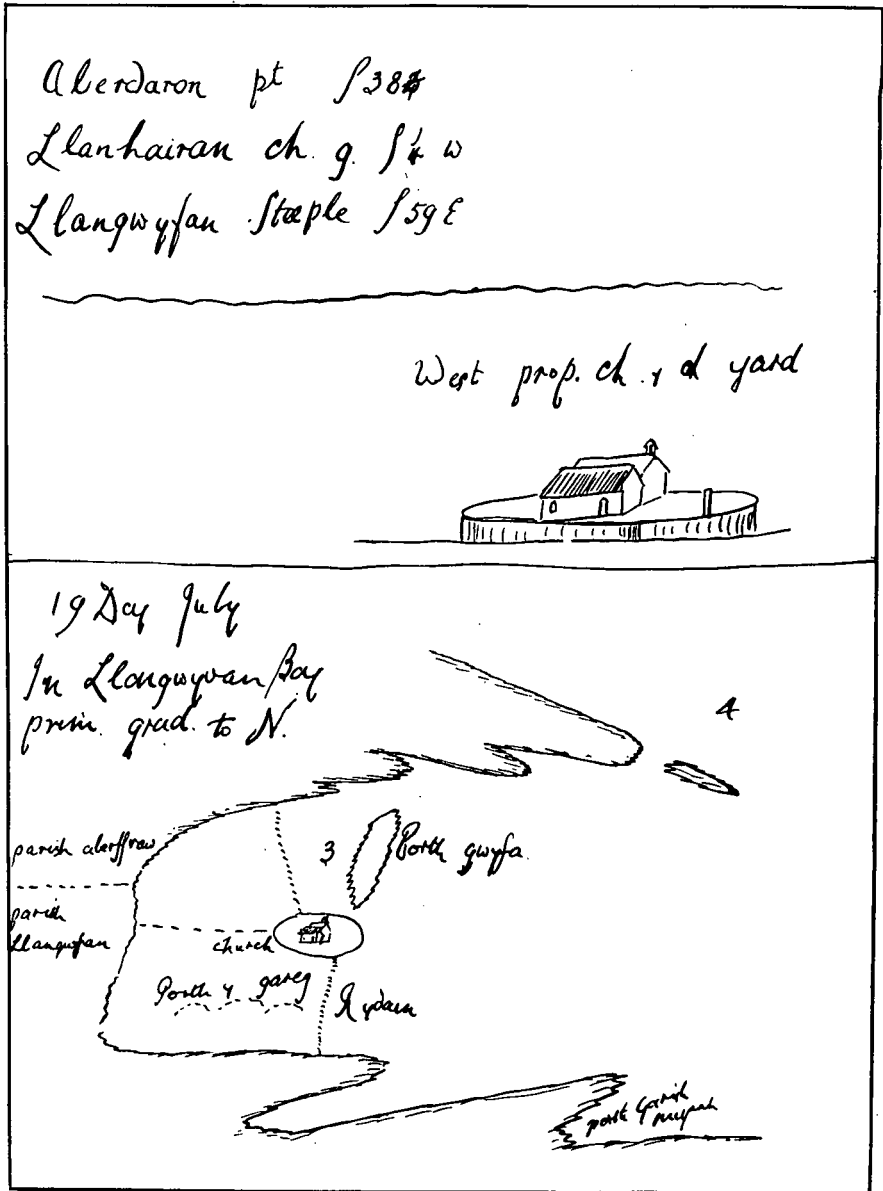 Aberdaron pt S38
Llanhairan ch. g. S W
Llangwyfan Steeple S59E
West prop. ch. y d yard
19 Day July
In Llangwyvan Bay
prim. grad. to N.
4
parish aberffraw
3
Porth gwyfa
parish
Llangwfan
church
Porth y gareg
Rydain
porth